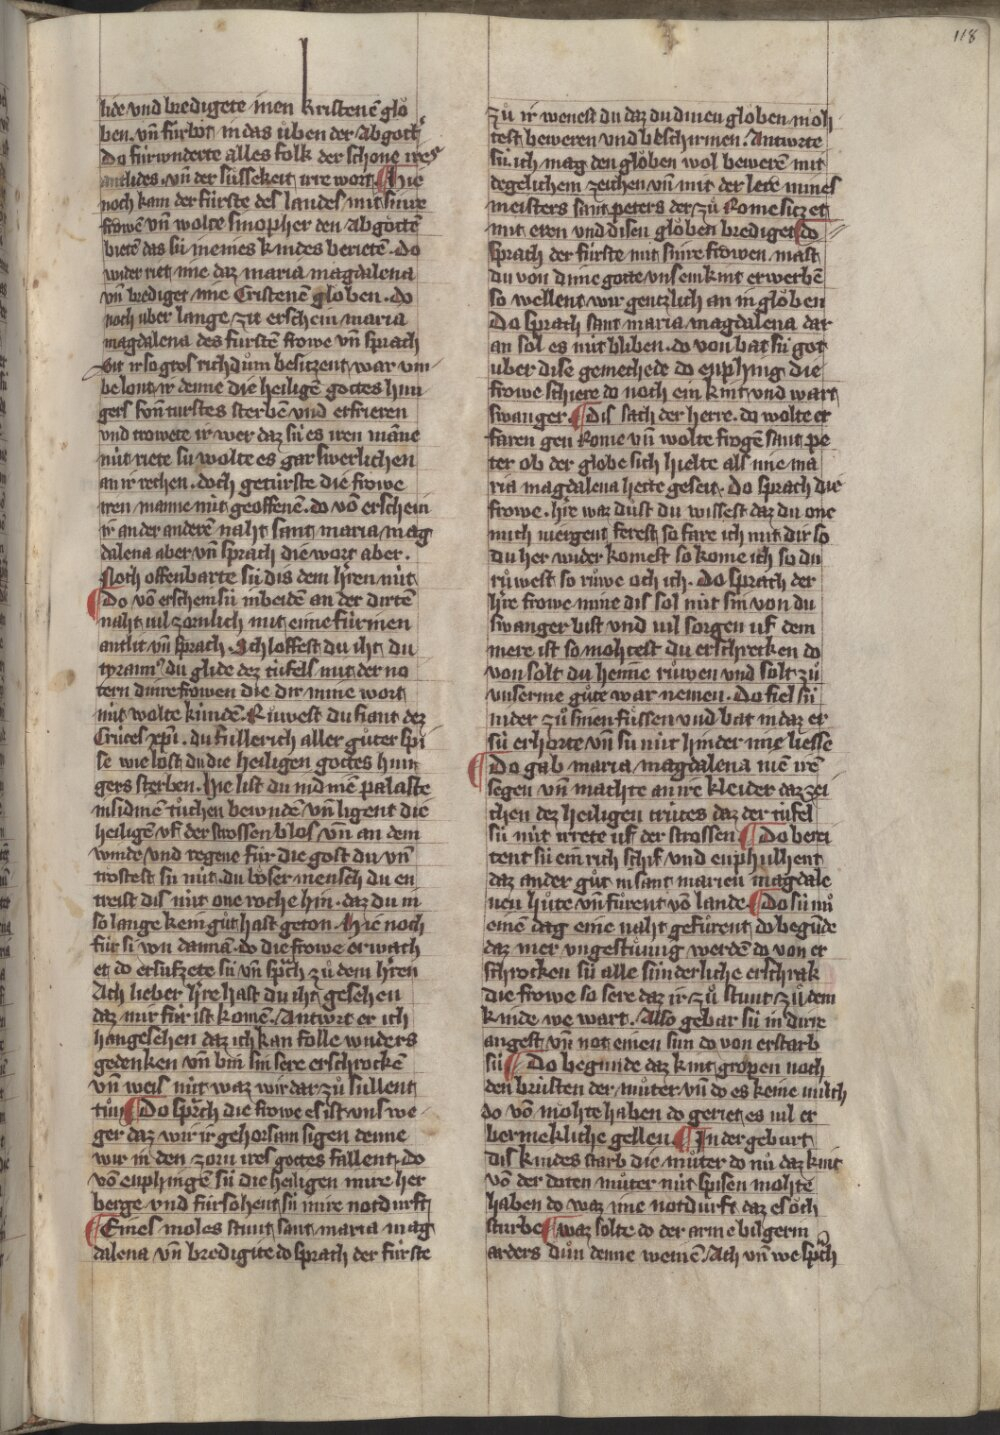 118
lide vnd bredigete inen kristenē glo
ben. vn̄ fúrbot in das ůben der abgoͤtt͛
Do fúrwnderte alles folk der schone ires
antlides. vn̄ der sússekeit irre wort. Hie
noch kam der fúrste des landes mit sinre
frowen vn̄ wolte sinopher den abgottē
bietē das sú in eines kindes berietē. Do
wider riet mie daz maria magdalena
vn̄ brediget mie Cristenē gloͤben. do
noch vber lange zit erschein maria
magdalena des fúrstē frowe vn̄ sprach
Sit ir so gros richduͦm besitzent, war vm
be lont ir denne die heiligē gottes hun
gers fon̄ turstes sterbē vnd erfrieren
vnd trowete ir wer daz sú es iren māne
nút riete sú wolte es gar swerlichen
an ir rechen. doch getúrste die frowe
iren manne nút geoffenē. do vō erschein
ir an der anderē naht sant maria mag
dalena aber vn̄ sprach die wort aber.
Noch offenbarte sú dis dem h͛ren nút
Do vō erschein sú in beidē an der dirtē
naht vil zornlich mit eime fúrinen
antlit vn̄ sprach. Schloffest du iht du
tyrann⁹ du glide dez túfels mit der no
tern dinre frowen die dir mine wort
nút wolte kúndē. Růwest du fiant dez
Crúces xp̄i. du fúllerich aller guͦter spi
se wie lost du die heiligen gottes hun
gers sterben. Hie list du in dinē palaste
in sidinē tuͤchen bewndē vn̄ ligent die
heiligē vf der strossen blos vn̄ an dem
winde vnd regene fúr die gost du vn̄
trostest sú nút. du boͤser mensch du en
treist dis nút one roche hin. daz du in
so lange kein guͦt hast geton. Hie noch
fúr si von dannā. do die frowe erwach
et do ersúfzete sú vn̄ sprͣch zuͦ dem h͛ren
Ach lieber h͛re hast du iht gesehen
daz mir fúr ist komē. Antwrt er ich
han gesehen daz ich kan folle wnders
gedenken vn̄ bin sin sere erschrockē
vn̄ weis nút waz wir dar zuͦ súllent
tuͦn Do sprͣch die frowe es ist vns we
ger daz wir ir gehorsam sigen denne
wir in den zorn ires gottes fallent. do
vō enphingē sú die heiligen in ire her
berge vnd fúrsohent sú in ire notdurft
Eines moles stunt sant maria mag
dalena vn̄ bredigite do sprach der fúrste
zuͦ ir wenest du daz du dinen gloͤben moͤh
test beweren vnd beschirmen. Antwrte
sú. ich mag den gloͤben wol bewerē mit
degelichem zeichen vn̄ mit der lere mines
meisters sant peters der zuͦ Rome sitzet
mit eren vnd disen gloͤben brediget do
sprach der fúrste mit sinre frowen. maht
du von dime gotte vns ein kint erwerbē
so wellent wir gentzlich an in gloͤben
Do sprach sant maria magdalena dar
an sol es nút bliben. do von bat sú got
vber dise gemechede do enphing die
frowe schiere do noch ein kint vnd wart
swanger. Dis sach der herre. do wolte er
faren gen Rome vn̄ wolte frogē sant pe
ter ob der globe sich hielte als mie ma
ria magdalena hette geseit. Do sprach die
frowe. h͛re waz dúst du wissest daz du one
mich niergent ferest so fare ich mit dir so
du her wider komest so kome ich so du
růwest so růwe och ich. Do sprach der
h͛re frowe mine dis sol nút sin von du
swanger bist vnd vil sorgen vf dem
mere ist so moͤhtest du erschrecken do
von solt du heime růwen vnd solt zuͦ
vnserme guͦte war nemen. Do fiel sú
nider zuͦ sinen fuͤssen vnd bat in daz er
sú erhorte vn̄ sú nút hinder mie liesse
Do gab maria magdalena inē irē
segen vn̄ machte an ire kleider daz zei
chen dez heiligen crúces daz der túfel
sú nút irrete vf der strossen. Do berei
tent sú ein rich schif vnd enphulhent
daz ander guͦt in sant marien magdale
nen huͦte vn̄ fuͦrent vō lande. Do sú nuͦ
einē dag eine naht gefuͤrent do begūde
daz mer vngestuͤmig werdē do von er
schrocken sú alle súnderliche erschrak
die frowe so sere daz ir zuͦ stunt zuͦ dem
kinde we wart. Also gebar sú in dirre
angest vn̄ not einen sun do von er starb
sú Do begunde daz kint gropen noch
den brústen der muͦter vn̄ do es keine milch
do vō mohte haben do geriet es vil er
bermekliche gellen In der geburt
dis kindes starb die muͦter do nuͦ daz kint
vō der doten muͦter nút spisen mohte
haben do waz ime notdurft daz es oͤch
sturbe waz solte do der arme bilgerin
anders duͦn denne weinē. Ach vn̄ we sp̄ch